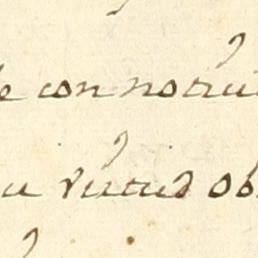 con notru
su virtud ob